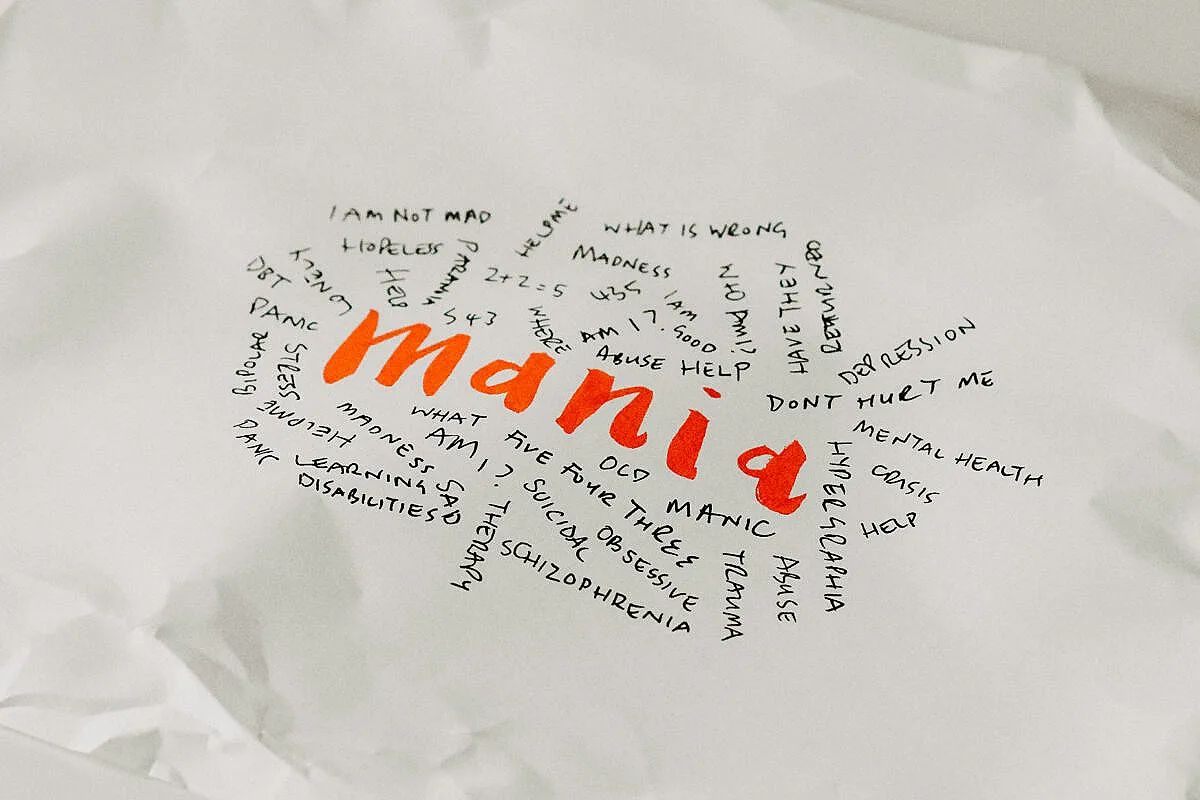 I AM NOT MAD
HELP ME
WHAT IS WRONG
HOPELESS
PARANIA
MADNESS
LONELY
DBT
HELP
2+2=5
435
I AM
WHO AM I?
HAVE THEY
PANIC
543
WHERE
AM I?
GOOD
ABUSE HELP
DEPRESSION
mania
DONT HURT ME
BIPOLAR
STRESS
HELP ME
PANIC
MADNESS
WHAT
AM I?
FIVE FOUR THREE
OLD
MANIC
MENTAL HEALTH
CRISIS
HELP
HYPERGRAPHIA
LEARNING
DISABILITIES
SAD
THERAPY
SUICIDAL
OBSESSIVE
SCHIZOPHRENIA
TRAUMA
ABUSE